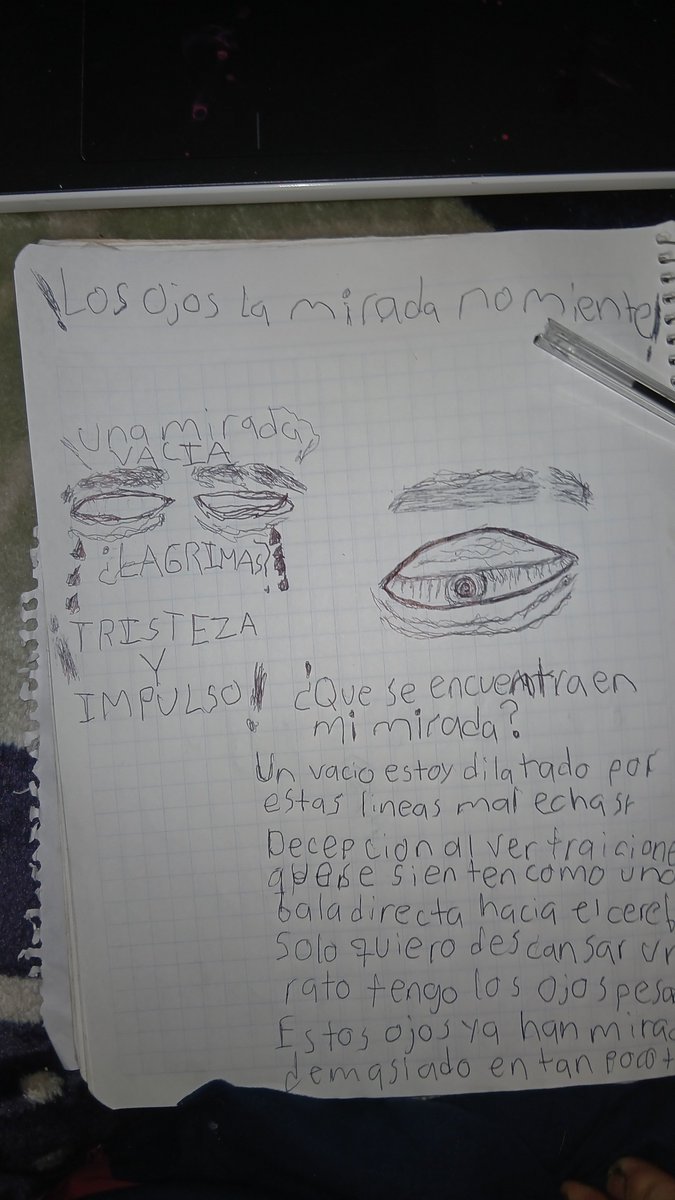 ¡Los ojos la mirada no miente!
¡una mirada
VACIA
¿LAGRIMAS?
TRISTEZA
Y
IMPULSO!
¿Que se encuentra en
mi mirada?
Un vacio estoy dilatado por
estas lineas mal echas
Decepcion al ver traicione
que se sienten como una
bala directa hacia el cereb
Solo quiero descansar un
rato tengo los ojos pesa
Estos ojos ya han mirad
demasiado en tan poco t